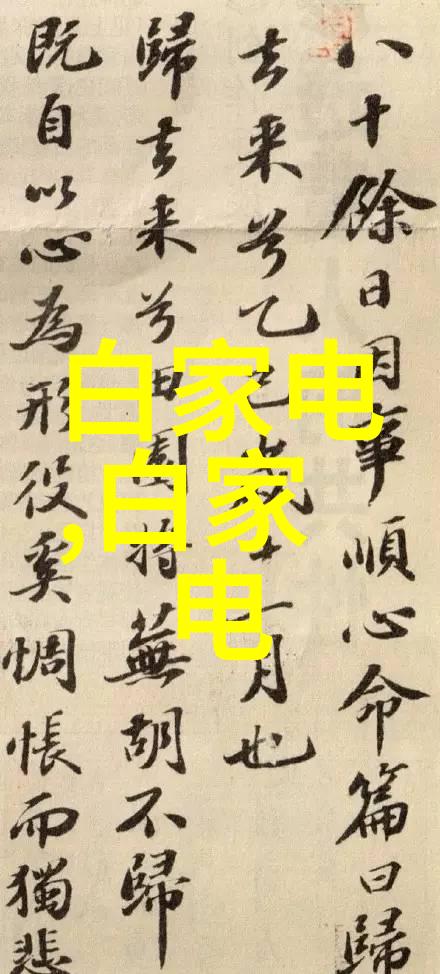 八十餘日因事順心命篇曰歸
去来兮乙巳歲十一月也
歸去来兮田園將蕪胡不歸
既自以心為形役奚惆悵而獨悲
白家电
,白家
电